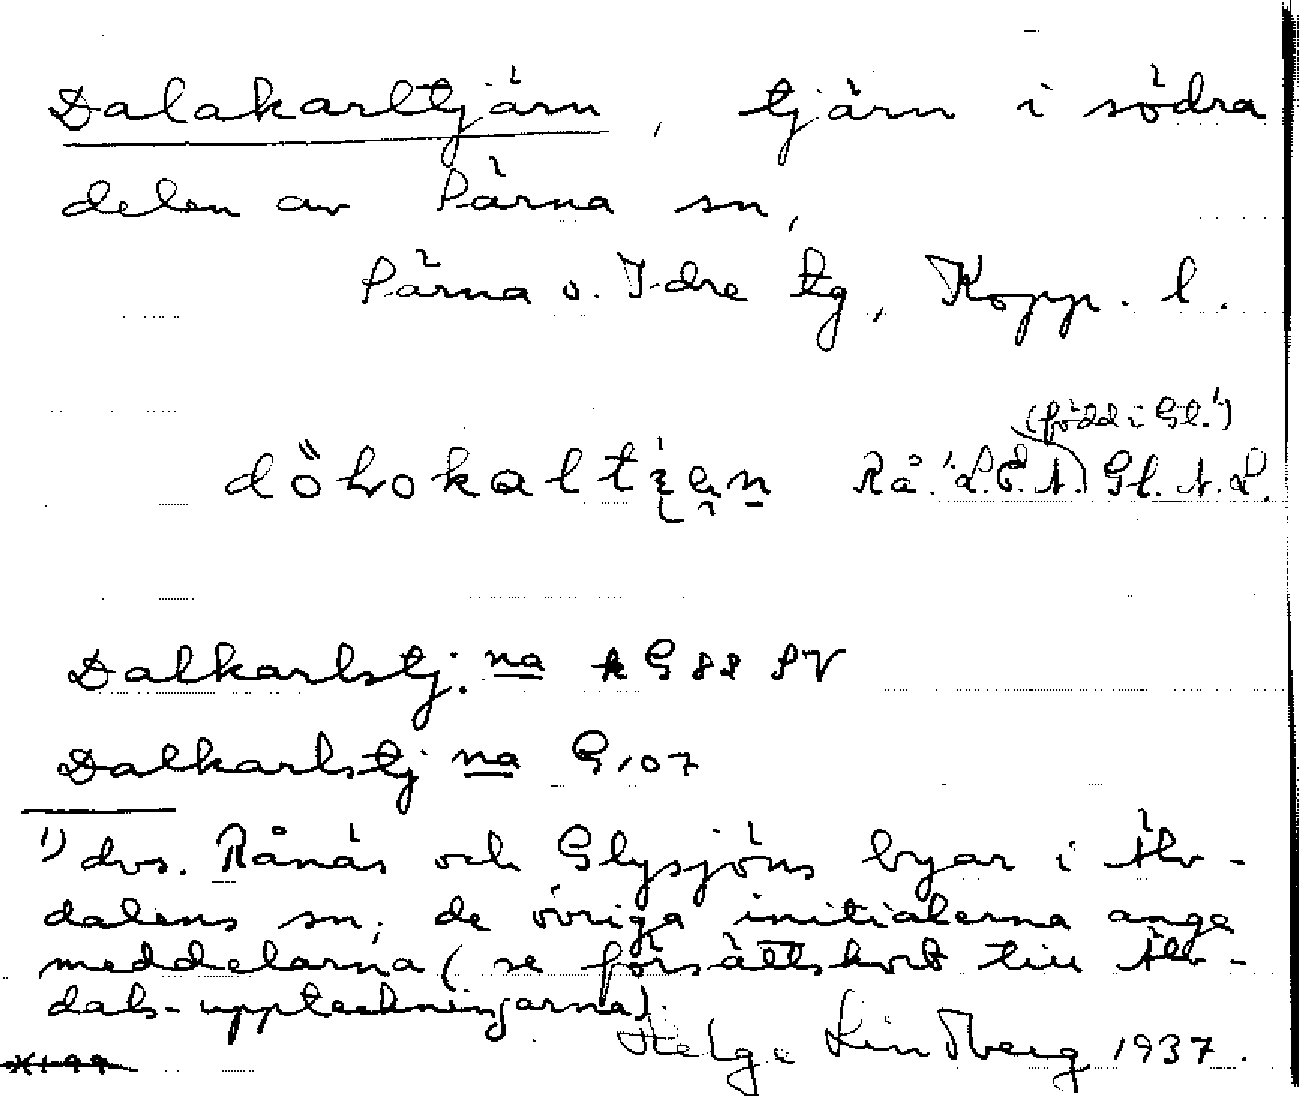 Dalakarltjärn, tjärn i södra
delen av Särna sn,
Särna o. Idre tg, Kopp. l.
(född i Gl.¹)
Rå.¹ L.E.A. Gl. A.L.
Dalkarlstj. na kG 82 SV
Dalkarlstj na G 107
¹) dvs. Rånäs och Glysjöns byar i Älv-
dalens sn; de övriga initialerna ange
meddelarna (se försättskort till Älv-
dals-uppteckningarna).
Helge Lindberg 1937.